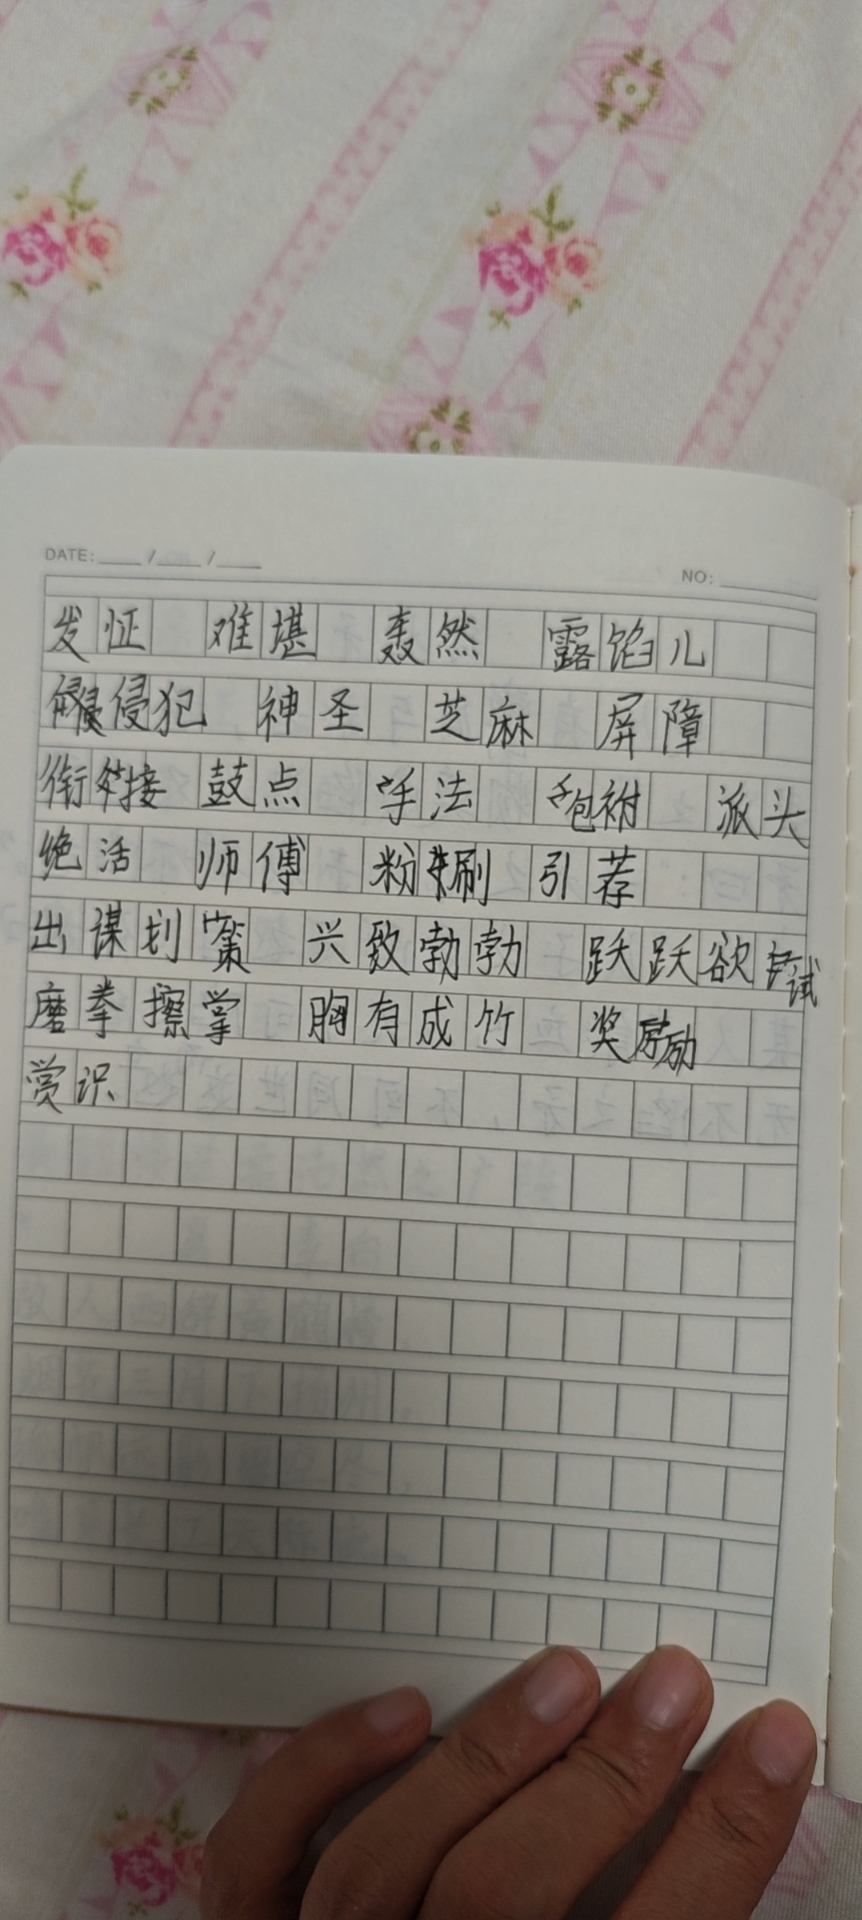 DATE: ____ / ____ / ____
NO: ____
发怔 难堪 轰然 露馅儿
侵犯 神圣 芝麻 屏障
衔接 鼓点 手法 包袱 派头
绝活 师傅 粉刷 引荐
出谋划策 兴致勃勃 跃跃欲试
磨拳擦掌 胸有成竹 奖励
赏识